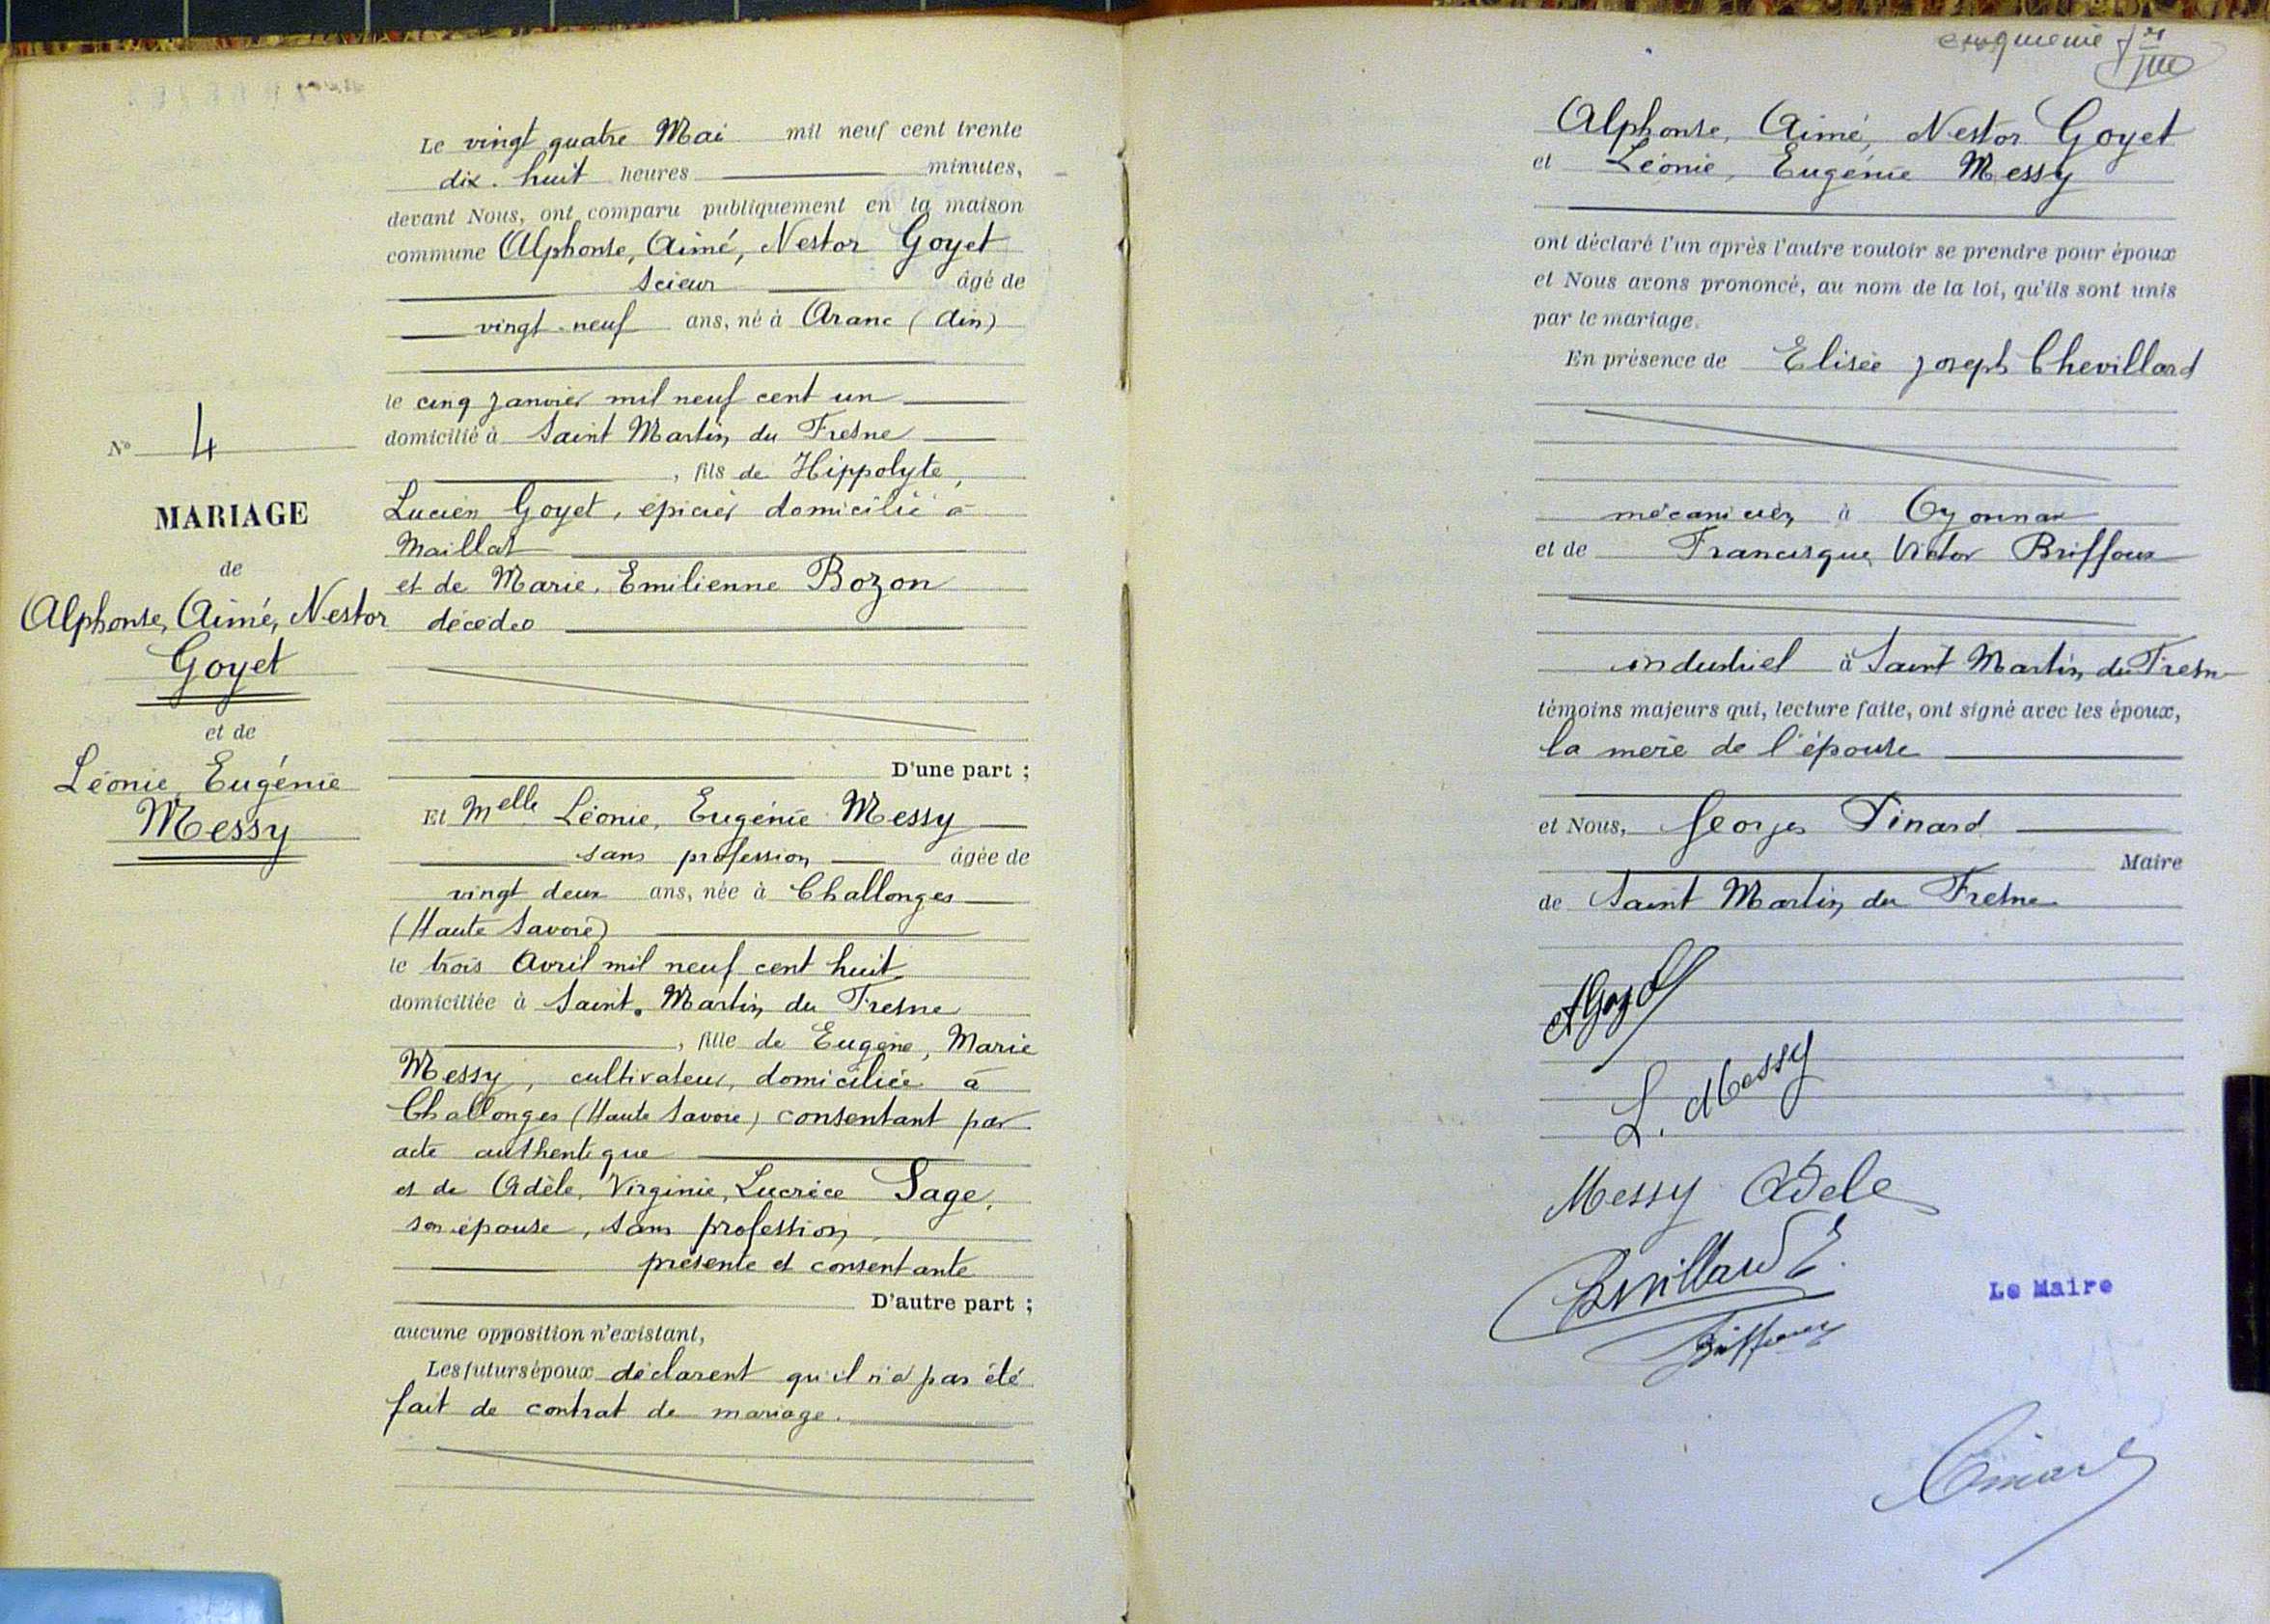 Le vingt quatre Mai mil neuf cent trente
dix. huit heures minutes,
devant Nous, ont comparu publiquement en la maison
commune Alphonse, Aimé, Nestor Goyet
scieur âgé de
vingt-neuf ans, né à Aranc (Ain)
le cinq janvier mil neuf cent un
domicilié à Saint Martin du Fresne
, fils de Hippolyte,
Lucien Goyet, épicier domicilié à
Maillat
et de Marie, Emilienne Bozon
décédée
D'une part ;
Et Melle Léonie, Eugénie Messy
sans profession âgée de
vingt deux ans, née à Challonges
(Haute Savoie)
le trois Avril mil neuf cent huit
domiciliée à Saint. Martin du Fresne
, fille de Eugène, Marie
Messy, cultivateur, domiciliée à
Challonges (Haute Savoie) consentant par
acte authentique
et de Adèle, Virginie, Lucrèce Sage,
son épouse, sans profession,
présente et consentante
D'autre part ;
aucune opposition n'existant,
Les futurs époux déclarent qu'il n'a pas été
fait de contrat de mariage.
N° 4
MARIAGE
de
Alphonse, Aimé, Nestor
Goyet
et de
Léonie, Eugénie
Messy
Alphonse, Aimé, Nestor Goyet
et Léonie, Eugénie Messy
ont déclaré l'un après l'autre vouloir se prendre pour époux
et Nous avons prononcé, au nom de la loi, qu'ils sont unis
par le mariage.
En présence de Elisée Joseph Chevillard
mécanicien à Oyonnax
et de Francisque Victor Briffoux
industriel à Saint Martin du Fresne
témoins majeurs qui, lecture faite, ont signé avec les époux,
la mère de l'épouse
et Nous, Georges Pinard
Maire
de Saint Martin du Fresne
A Goyet
L. Messy
Messy Adele
Chevillard E.
Briffoux
Le Maire
Pinard